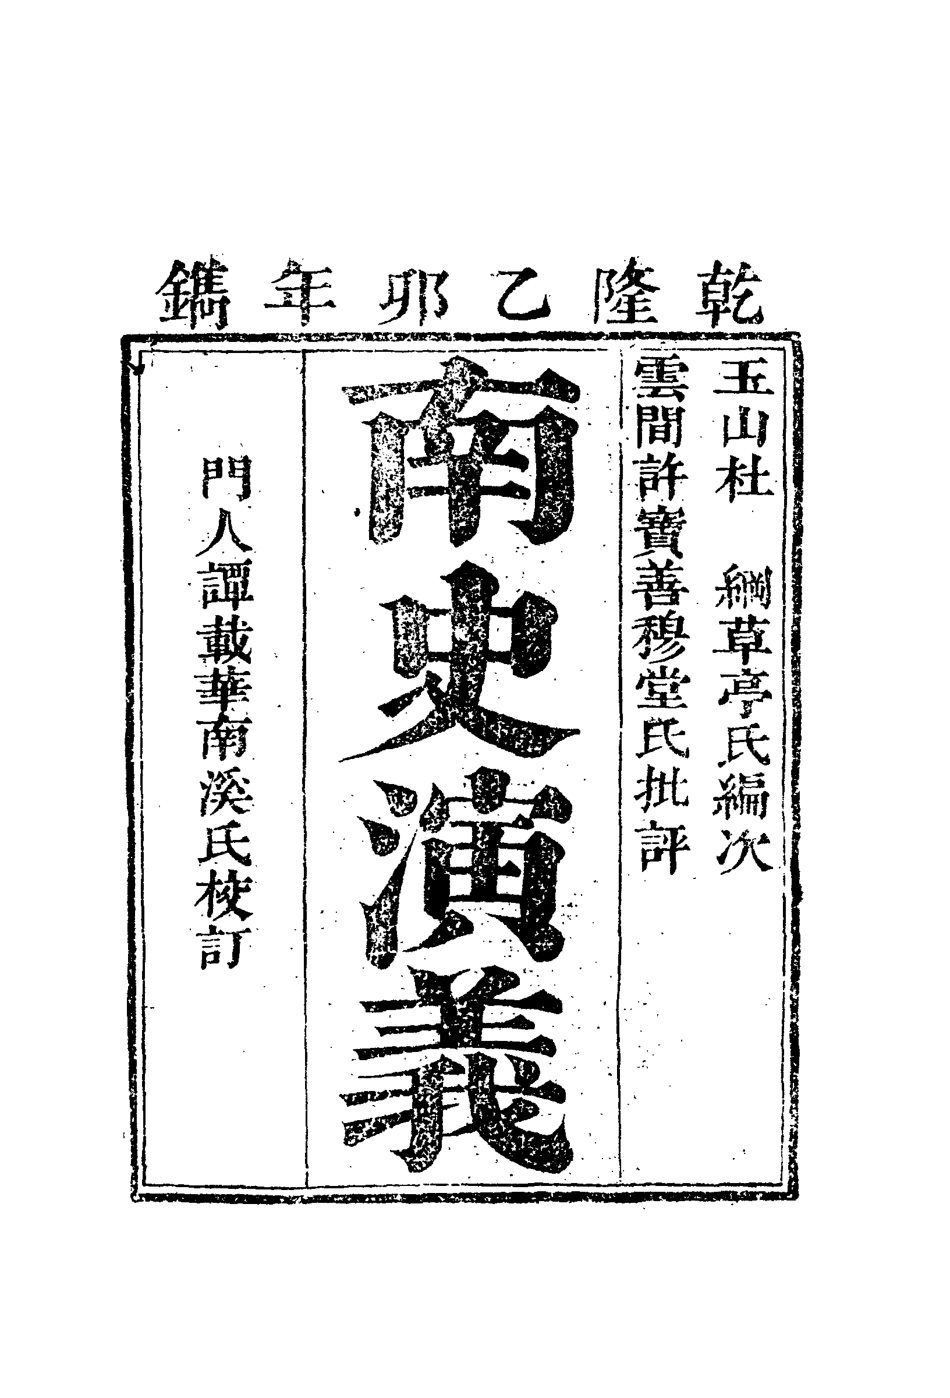 乾隆乙卯年鐫
玉山杜　綱草亭氏編次
雲間許寶善穆堂氏批評
南史演義
門人譚載華南溪氏校訂